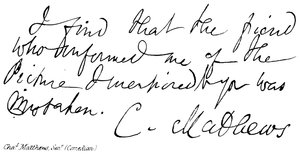 I find that the friend
who informed me of the
Picture I mentioned to you was
mistaken.
C. Mathews
Chas. Matthews, Senr. (Comedian)